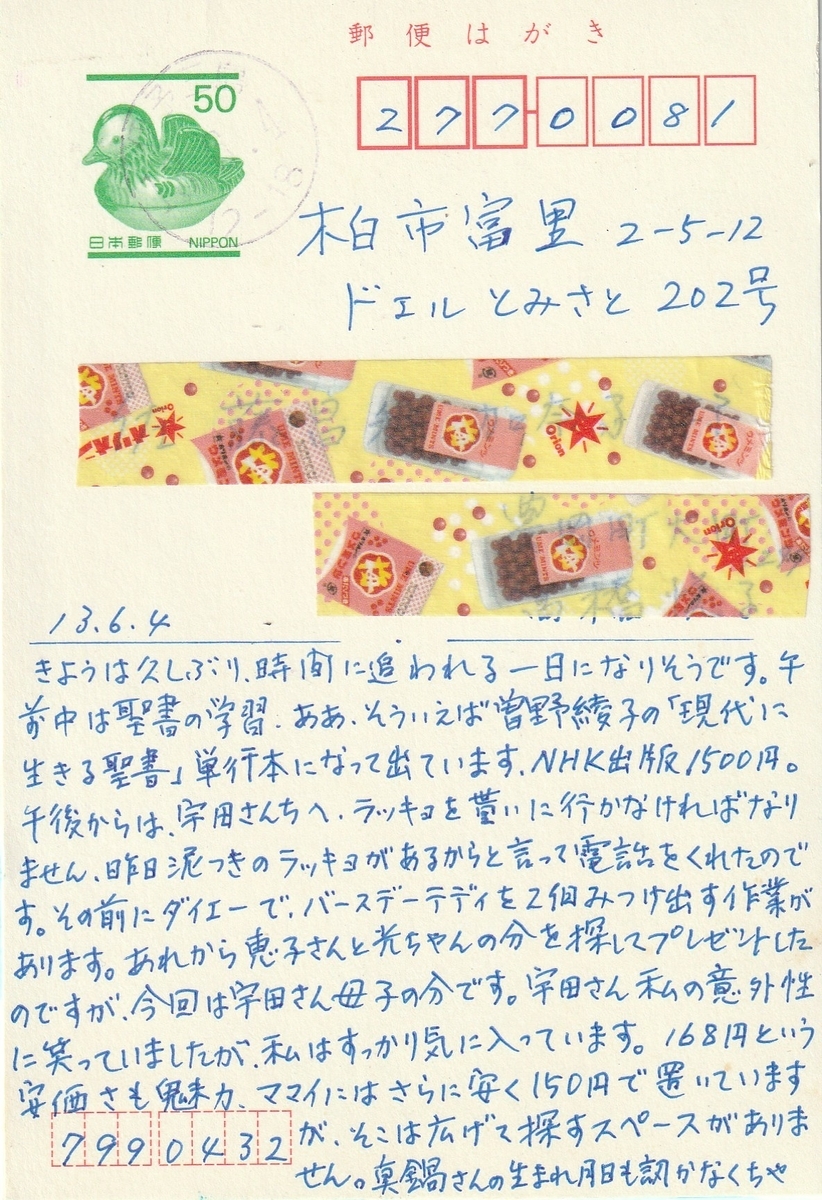 郵便はがき
50
日本郵便 NIPPON
12-18
2770081
柏市富里 2-5-12
ドエルとみさと 202号
オリオン
Orion
梅
UME MINTS
ウメミンツ
Orion
梅
UME MINTS
ウメミンツ
Orion
13.6.4
きょうは久しぶり、時間に追われる一日になりそうです。午
前中は聖書の学習、ああ、そういえば曽野綾子の「現代に
生きる聖書」単行本になって出ています、NHK出版1500円。
午後からは、宇田さんちへ、ラッキョを貰いに行かなければなり
ません、昨日泥つきのラッキョがあるからと言って電話をくれたので
す。その前にダイエーで、バースデーテディを2個みつけ出す作業が
あります。あれから恵子さんと光ちゃんの分を探してプレゼントした
のですが、今回は宇田さん母子の分です。宇田さん私の意外性
に笑っていましたが、私はすっかり気に入っています。168円という
安価さも魅力、ママイにはさらに安く150円で置いています
が、そこは広げて探すスペースがありま
せん。真鍋さんの生まれ月日も訊かなくちゃ
7990432